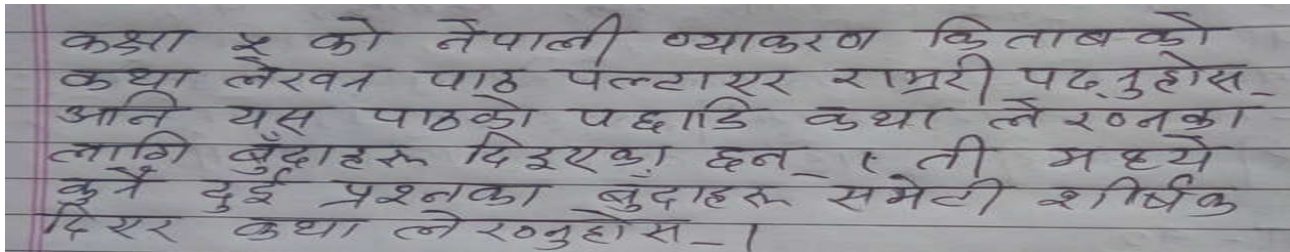 कक्षा ५ को नेपाली व्याकरण किताबको
कथा लेखन पाठ पल्टाएर राम्ररी पढ्नुहोस्
अनि यस पाठको पछाडि कथा लेख्नका
लागि बुँदाहरू दिइएका छन् । ती मध्ये
कुनै दुई प्रश्नका बुदाहरू समेटी शीर्षक
दिएर कथा लेख्नुहोस् ।